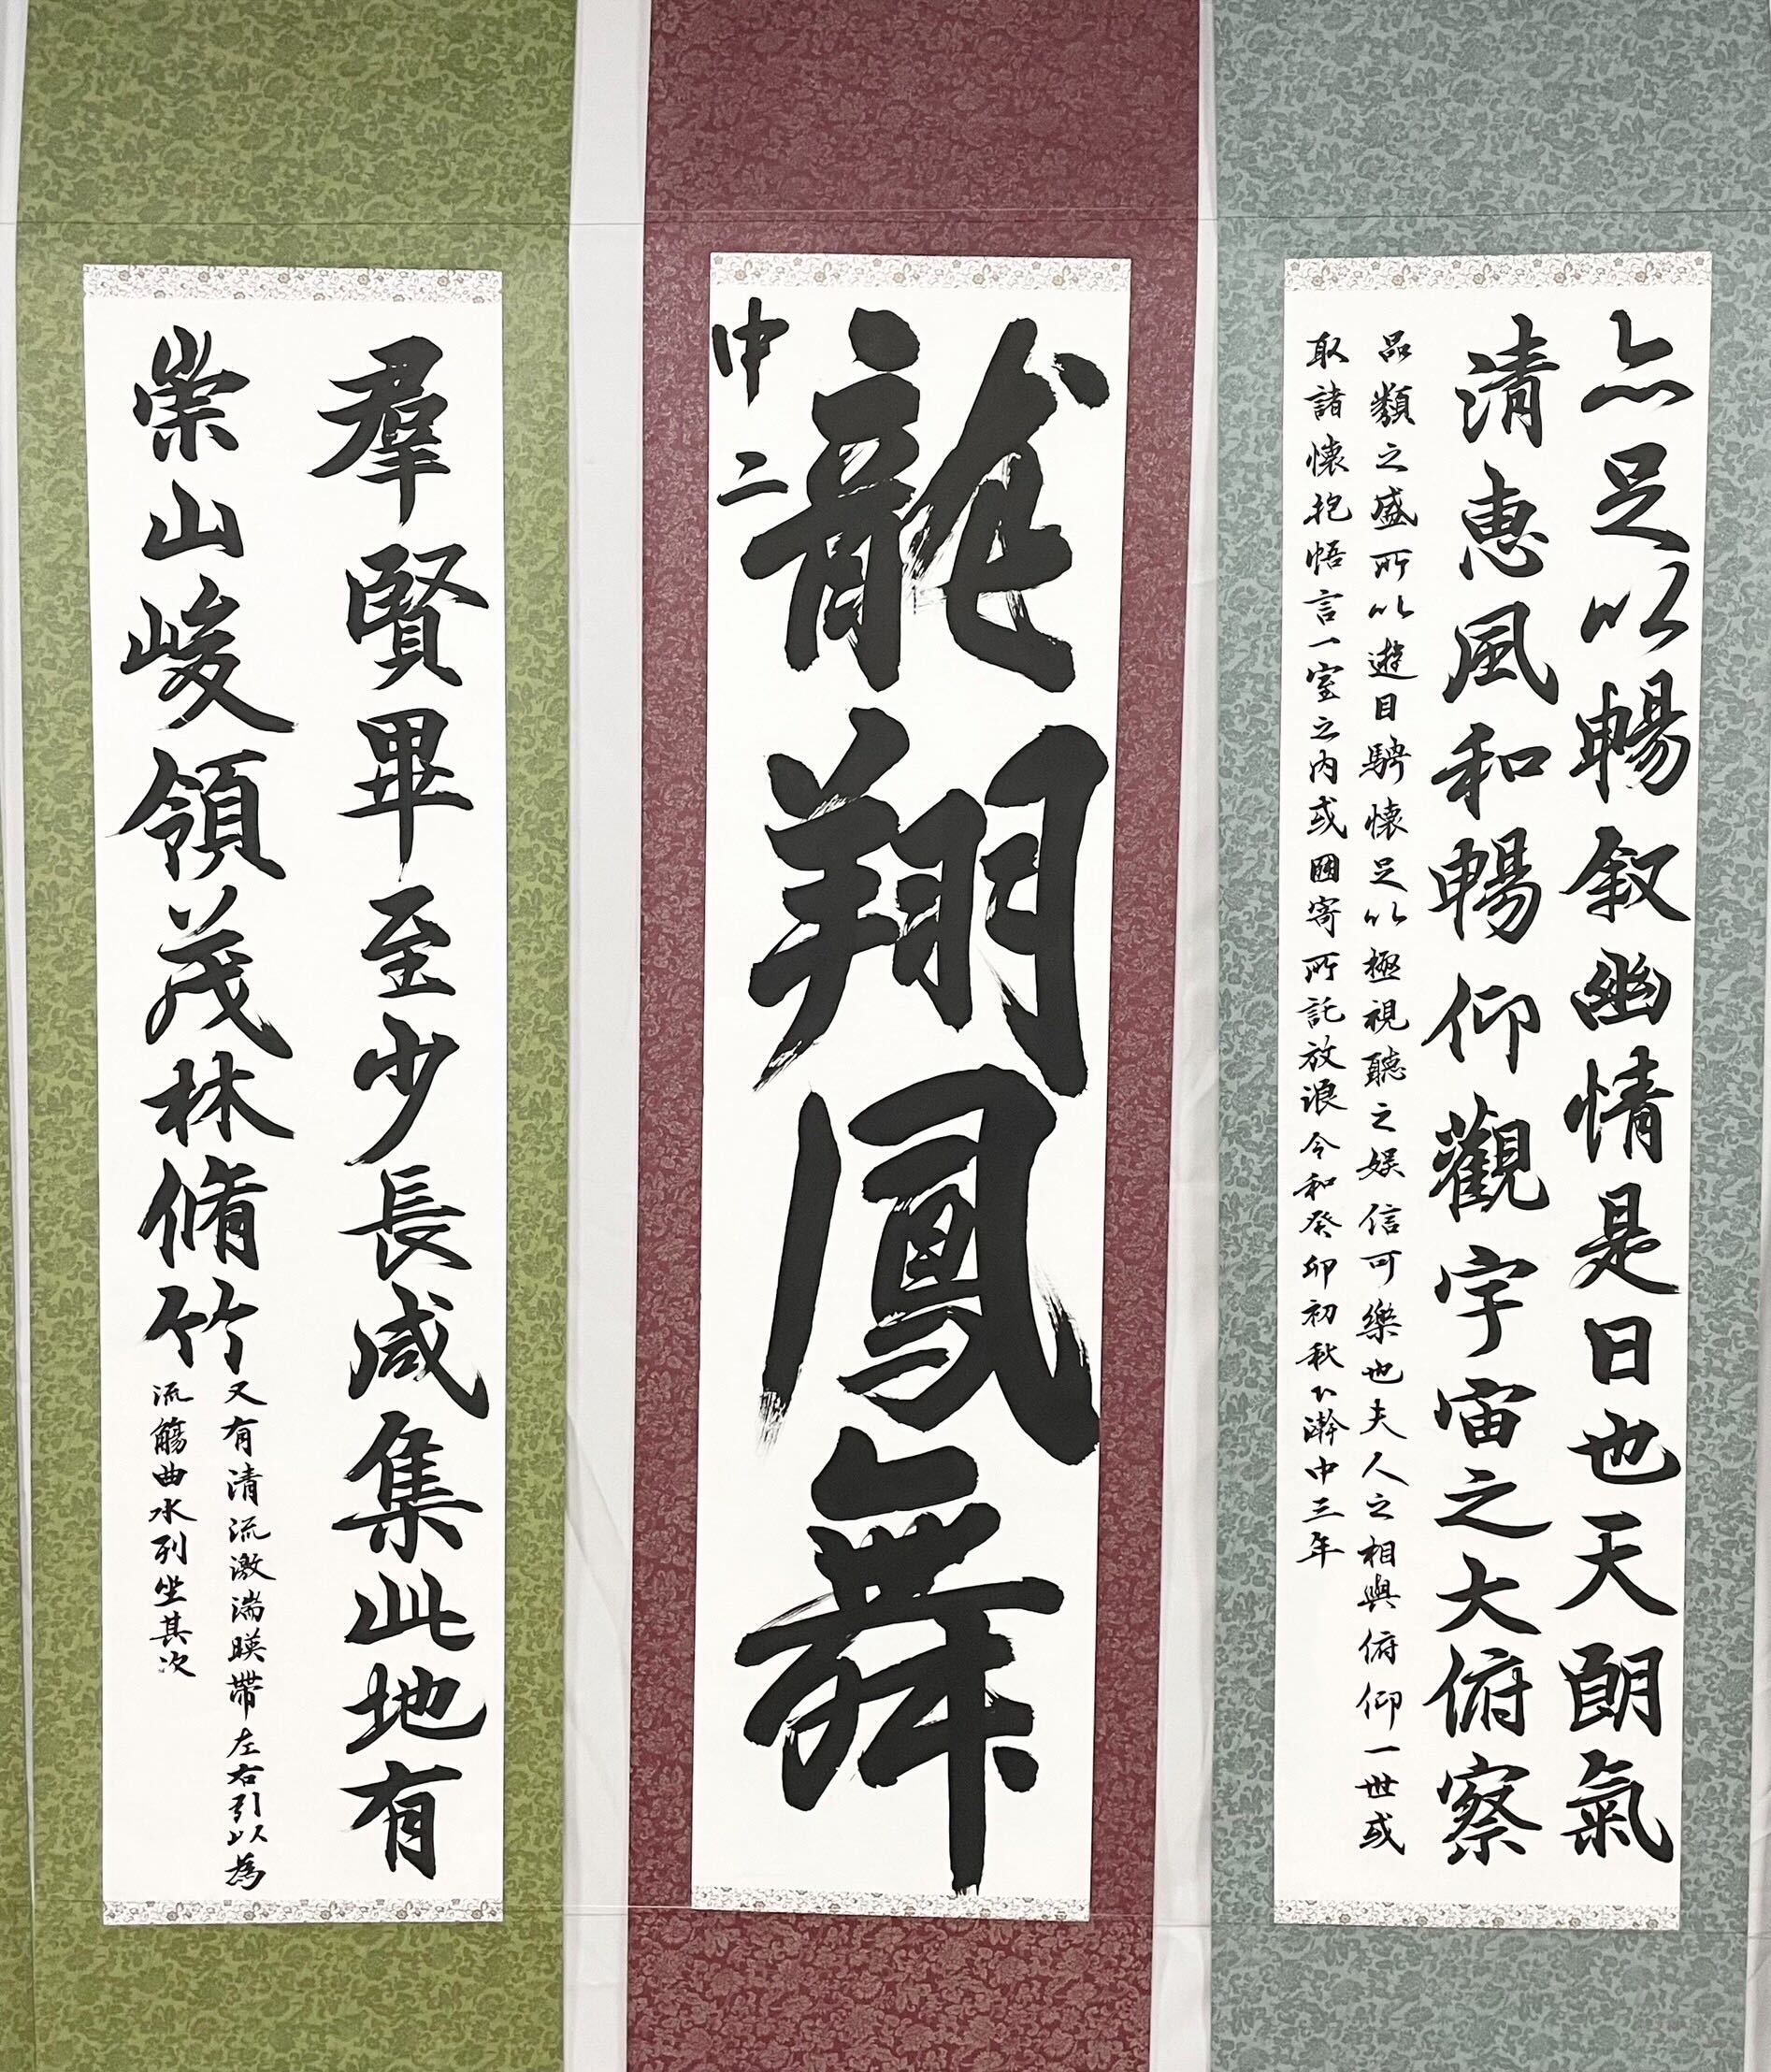 亦足以暢叙幽情是日也天朗氣
清惠風和暢仰觀宇宙之大俯察
品類之盛所以遊目騁懐足以極視聽之娯信可樂也夫人之相與俯仰一世或
取諸懐抱悟言一室之内或因寄所託放浪令和癸卯初秋下澣中三年
龍翔鳳舞
中二
羣賢畢至少長咸集此地有
崇山峻領茂林脩竹
又有清流激湍暎帶左右引以為
流觴曲水列坐其次